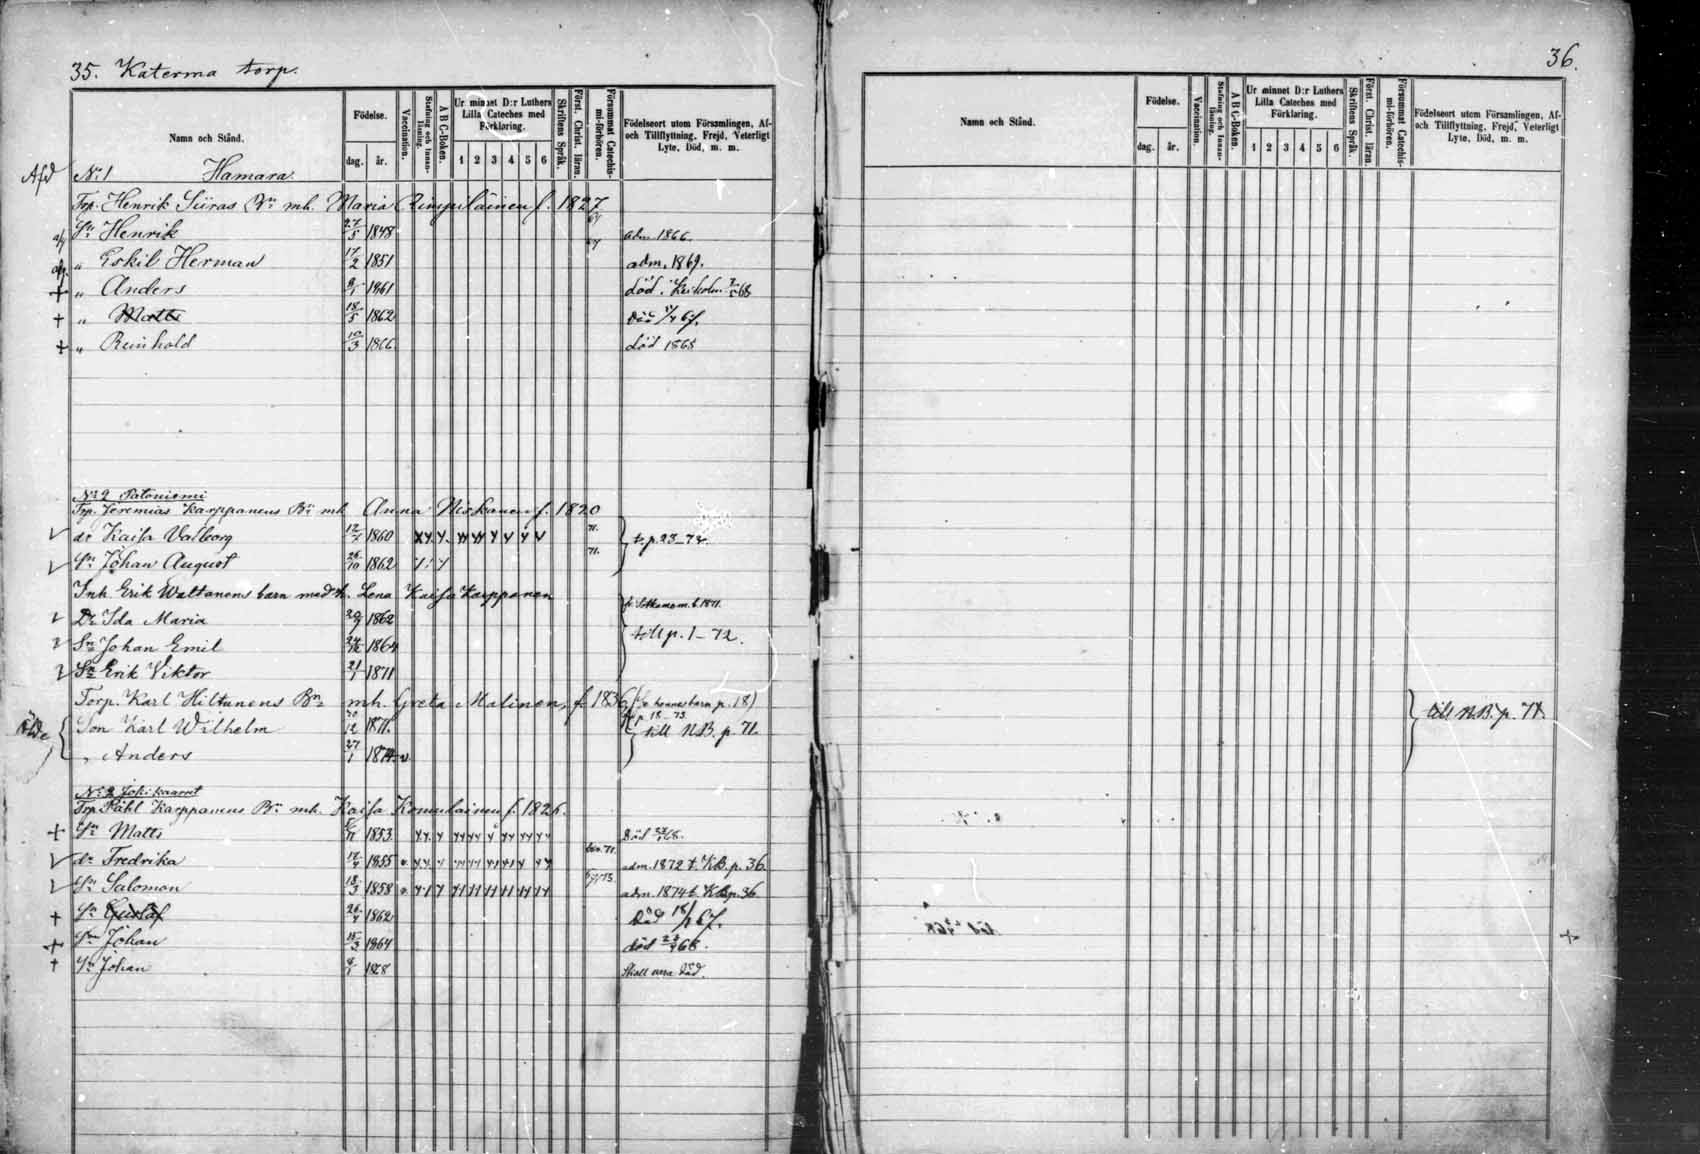 35. Katerma torp.
36.
Namn och Stånd.
Födelse.
dag. år.
Vaccination.
Stafning och Innanläsning.
A B C-Boken.
Ur minnet D:r Luthers Lilla Cateches med Förklaring.
1 2 3 4 5 6
Skriftens Språk.
Först. Christ. läran.
Försummat Catechismi-förhören.
Födelseort utom Församlingen, Af- och Tillflyttning, Frejd, Veterligt Lyte, Död, m. m.
Afd No 1 Hamara.
Torp. Henrik Siiras Bn mh. Maria Rimpiläinen f. 1827
Sn Henrik 27/5 1848 adm. 1866.
„ Eskil Herman 17/2 1851 adm. 1869.
+ „ Anders 1861 död i 68
+ „ Matts 18/5 1862 Död 67.
+ „ Reinhold 10/3 1866 död 1868
No 2 Patoniemi
Torp. Jeremias Karppanens Bn mh Anna Niskanen f. 1820
dr Kaisa Valborg 1860 71. t. p. 23–72.
Sn Johan August 26/10 1862 71.
Inh. Erik Wattanens barn med h. Lena Kaisa Karppanen
Dr Ida Maria 1862 till p. 1–72.
Sn Johan Emil 1864
Sn Erik Viktor 21/1 1871
Torp. Karl Hiltunens Bn mh. Greta Malinen f. 1836 hennes barn p. 18)
Son Karl Wilhelm 12 1871. p. 18–73. till N.B. p. 71. till N.B. p. 71.
„ Anders 27/1 1874 v
No 2 Jokikaarret
Torp. Påhl Karppanens Bn mh. Kaisa Komulainen f. 1826.
+ Sn Matts 1853 Död 68.
dr Fredrika 17/4 1855 v. adm. 1872 t. KB. p. 36.
Sn Salomon 18/3 1858 v. 73. adm. 1874 t. KB p. 36
+ Sn Gustaf 26/4 1862 Död 67.
+ Sn Johan 15/3 1864 död 68.
+ Sn Johan 1868 Skall vara död.
Namn och Stånd.
Födelse.
dag. år.
Vaccination.
Stafning och Innanläsning.
A B C-Boken.
Ur minnet D:r Luthers Lilla Cateches med Förklaring.
1 2 3 4 5 6
Skriftens Språk.
Först. Christ. läran.
Försummat Catechismi-förhören.
Födelseort utom Församlingen, Af- och Tillflyttning, Frejd, Veterligt Lyte, Död, m. m.